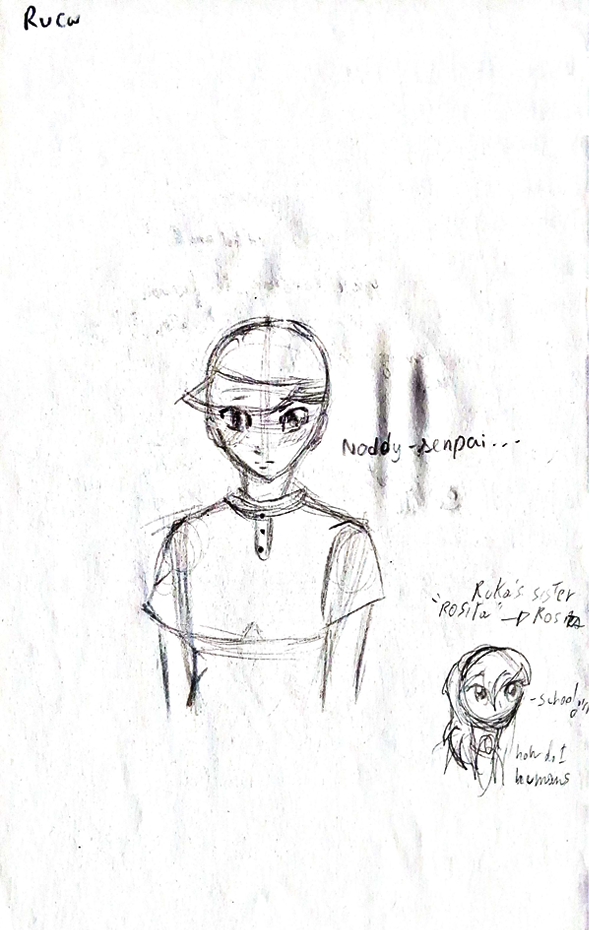 Rucw
Noddy-senpai...
Ruka's sister
"Rosita" →
- school
how do I
humans